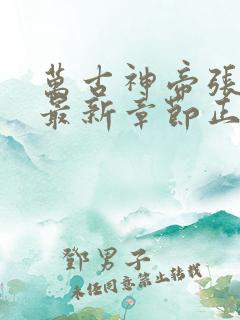 萬古神帝張
最新章節正
鄧男子
未經同意禁止轉載